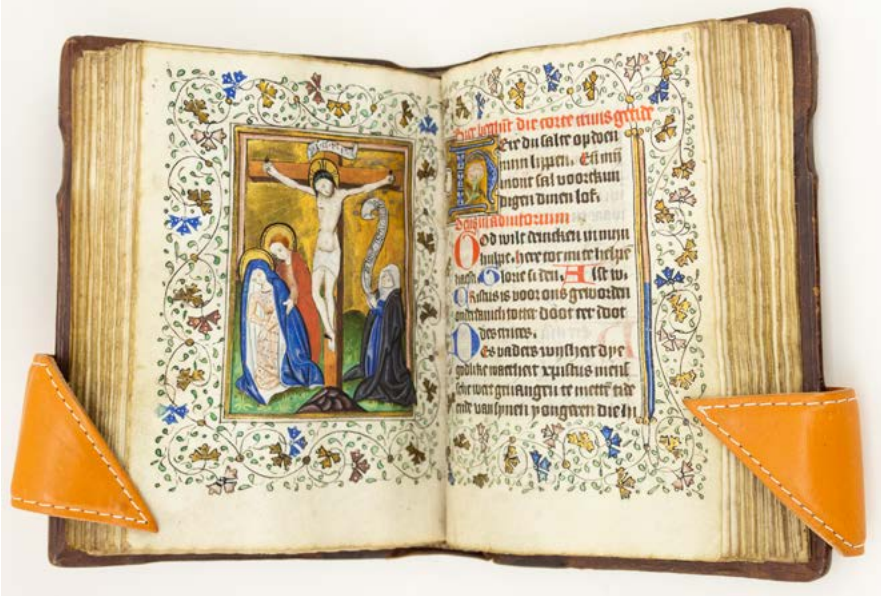 die corte cruus getide
HEre du salte opdoen
mijn lippen. Eñ mijn
mont sal voortkun
digen dinen lof.
Deus in adiutorium
God wilt deincken in mijn
hulpe. here mi te helpe
Glorie si den. Alst w.
Cristus is voor ons geworden
totter doot ter doot
des cruces.
Des vaders wijsheit dye
godlike waerheit xpistus mens
sche wert geuangen te mettē tide
ende van sijnen yongeren die hi